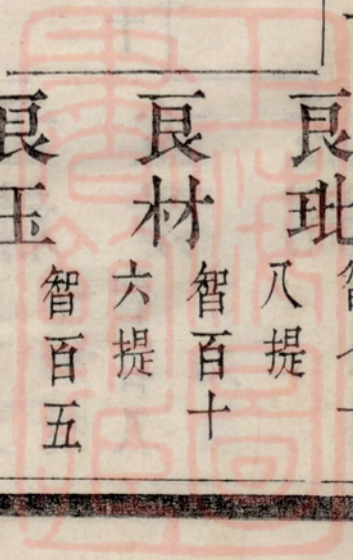 良玭
八提
良材
智百十
六提
良玉
智百五